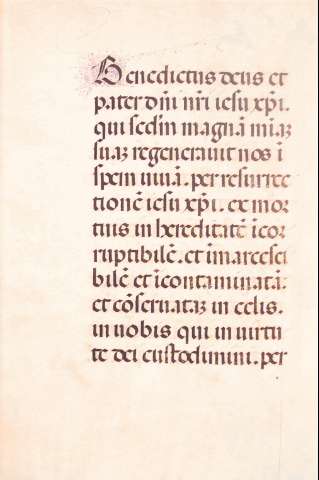 Benedictus deus et
pater dñi nr̃i iesu xp̃i.
qui secd̃m magnã mĩaꝫ
suaꝫ regenerauit nos ĩ
spem uiuã. per resurrec
tionẽ iesu xp̃i. ex mor
tuis in hereditatẽ ĩcor
ruptibilẽ. et ĩmarcesci
bilẽ et ĩcontaminatã.
et cõseruataꝫ in celis.
in uobis qui in uirtu
te dei custodimini. per